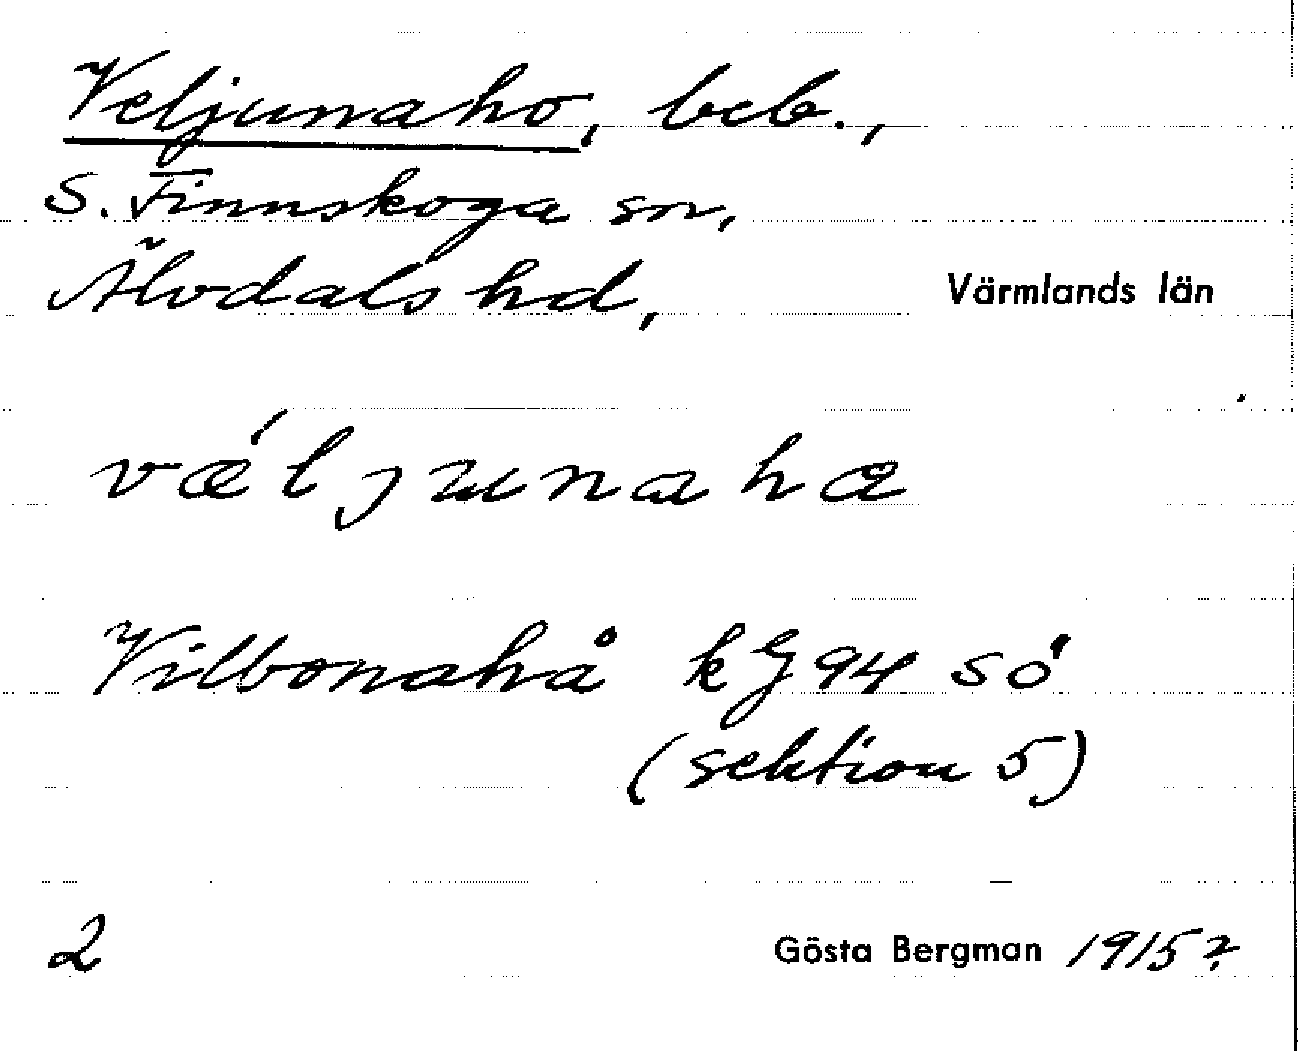 Veljunaho, beb.,
S. Finnskoga sn,
Älvdals hd, Värmlands län
væ´ljunahæ
Vilbonahå kJ 94 sö
(sektion 5)
2 Gösta Bergman 1915?